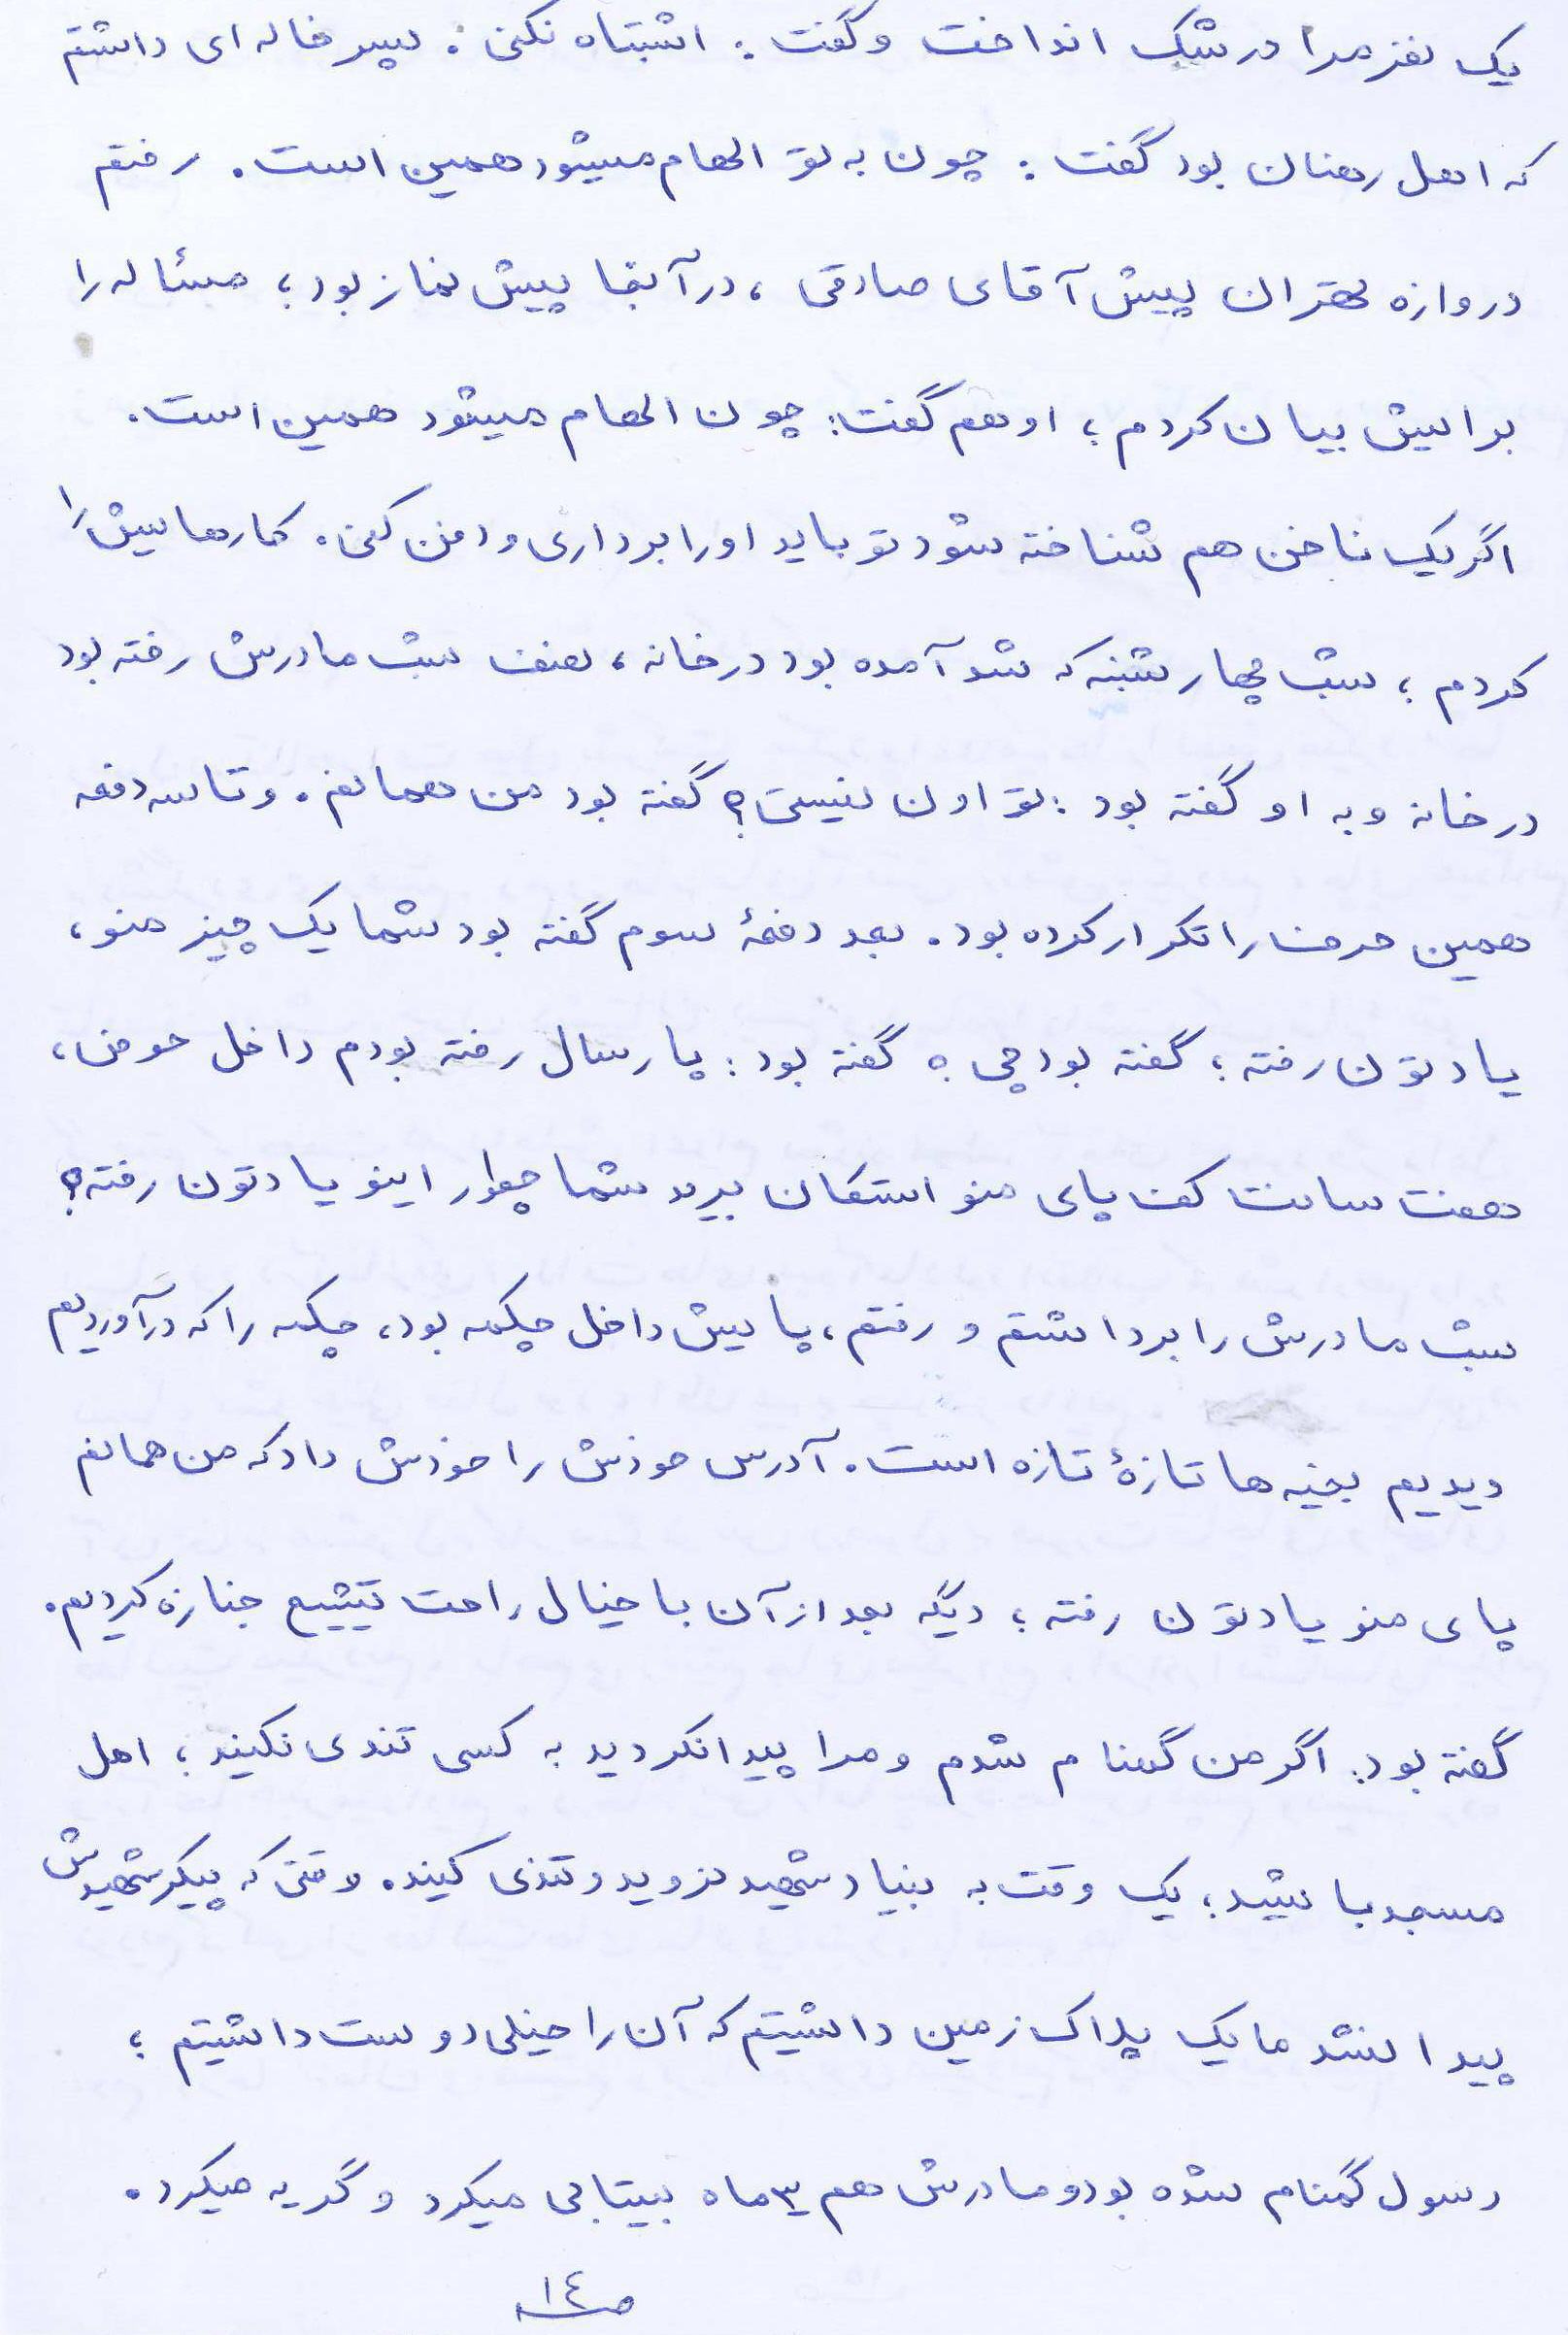 یک نفر مرا در شک انداخت و گفت : اشتباه نکنی : پسر خاله ای داشتم
که اهل رهنان بود گفت : چون به تو الهام میشود همین است . رفتم
دروازه تهران پیش آقای صادقی ، در آنجا پیش نماز بود ؛ مسئاله را
برایش بیان کردم ؛ او هم گفت : چون الهام میشود همین است .
اگر یک ناخن هم شناخته شود تو باید او را برداری و دفن کنی . کارهایش را
کردم ؛ شب چهارشنبه که شد آمده بود در خانه ، نصف شب مادرش رفته بود
در خانه و به او گفته بود : تو اون نیستی ؟ گفته بود من همانم . و تا سه دفعه
همین حرف را تکرار کرده بود . بعد دفعهٔ سوم گفته بود شما یک چیز منو ،
یادتون رفته ؛ گفته بود چی ؟ گفته بود : پارسال رفته بودم داخل حوض ،
هفت سانت کف پای منو استکان برید شما چطور اینو یادتون رفته ؟
شب مادرش را برداشتم و رفتم ، پایش داخل چکمه بود ، چکمه را که درآوردیم
دیدیم بخیه ها تازهٔ تازه است . آدرس خودش را خودش داد که من همانم
پای منو یادتون رفته ؛ دیگه بعد از آن با خیال راحت تشییع جنازه کردیم .
گفته بود : اگر من گمنام شدم و مرا پیدا نکردید به کسی تندی نکنید ؛ اهل
مسجد باشید ؛ یک وقت به بنیاد شهید نروید و تندی کنید . وقتی که پیکر شهیدش
پیدا نشد ما یک پلاک زمین داشتیم که آن را خیلی دوست داشتیم ؛
رسول گمنام شده بود و مادرش هم ۳ ماه بیتابی میکرد و گریه میکرد .
ص ١٤